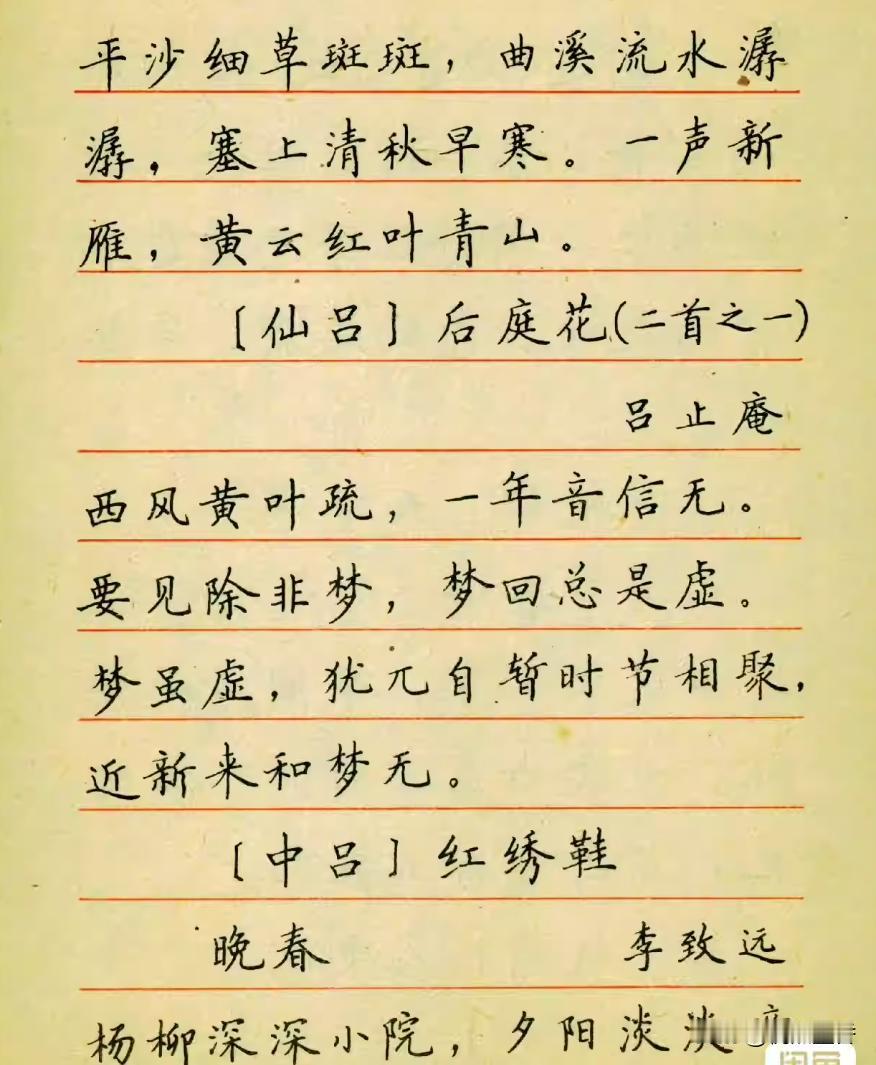 平沙细草斑斑，曲溪流水潺
潺，塞上清秋早寒。一声新
雁，黄云红叶青山。
［仙吕］后庭花(二首之一)
吕止庵
西风黄叶疏，一年音信无。
要见除非梦，梦回总是虚。
梦虽虚，犹兀自暂时节相聚，
近新来和梦无。
［中吕］红绣鞋
晚春 李致远
杨柳深深小院，夕阳淡淡